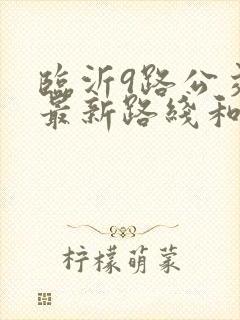 临沂9路公交
最新路线和
柠檬萌菜